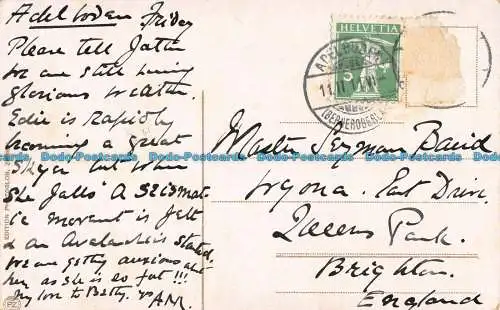 Adelboden Friday
Please tell Jatta
we are still having
glorious weather.
Edie is rapidly
becoming a great
Ski-er but when
she falls "A Seismat-
ic movement is felt
& an Avalanche is started,
We are getting anxious abt
her, as she is so fat !!!
My love to Betty. Yrs
A.M.
HELVETIA
ADELBODEN
(BERNEROBERL.)
Master Seymour Baird
East Drive
Queens Park.
Brighton.
England
Dodo-Postcards Dodo-Postcards Dodo-Postcards Dodo-Postcards
EDITION PHOTOGLOB